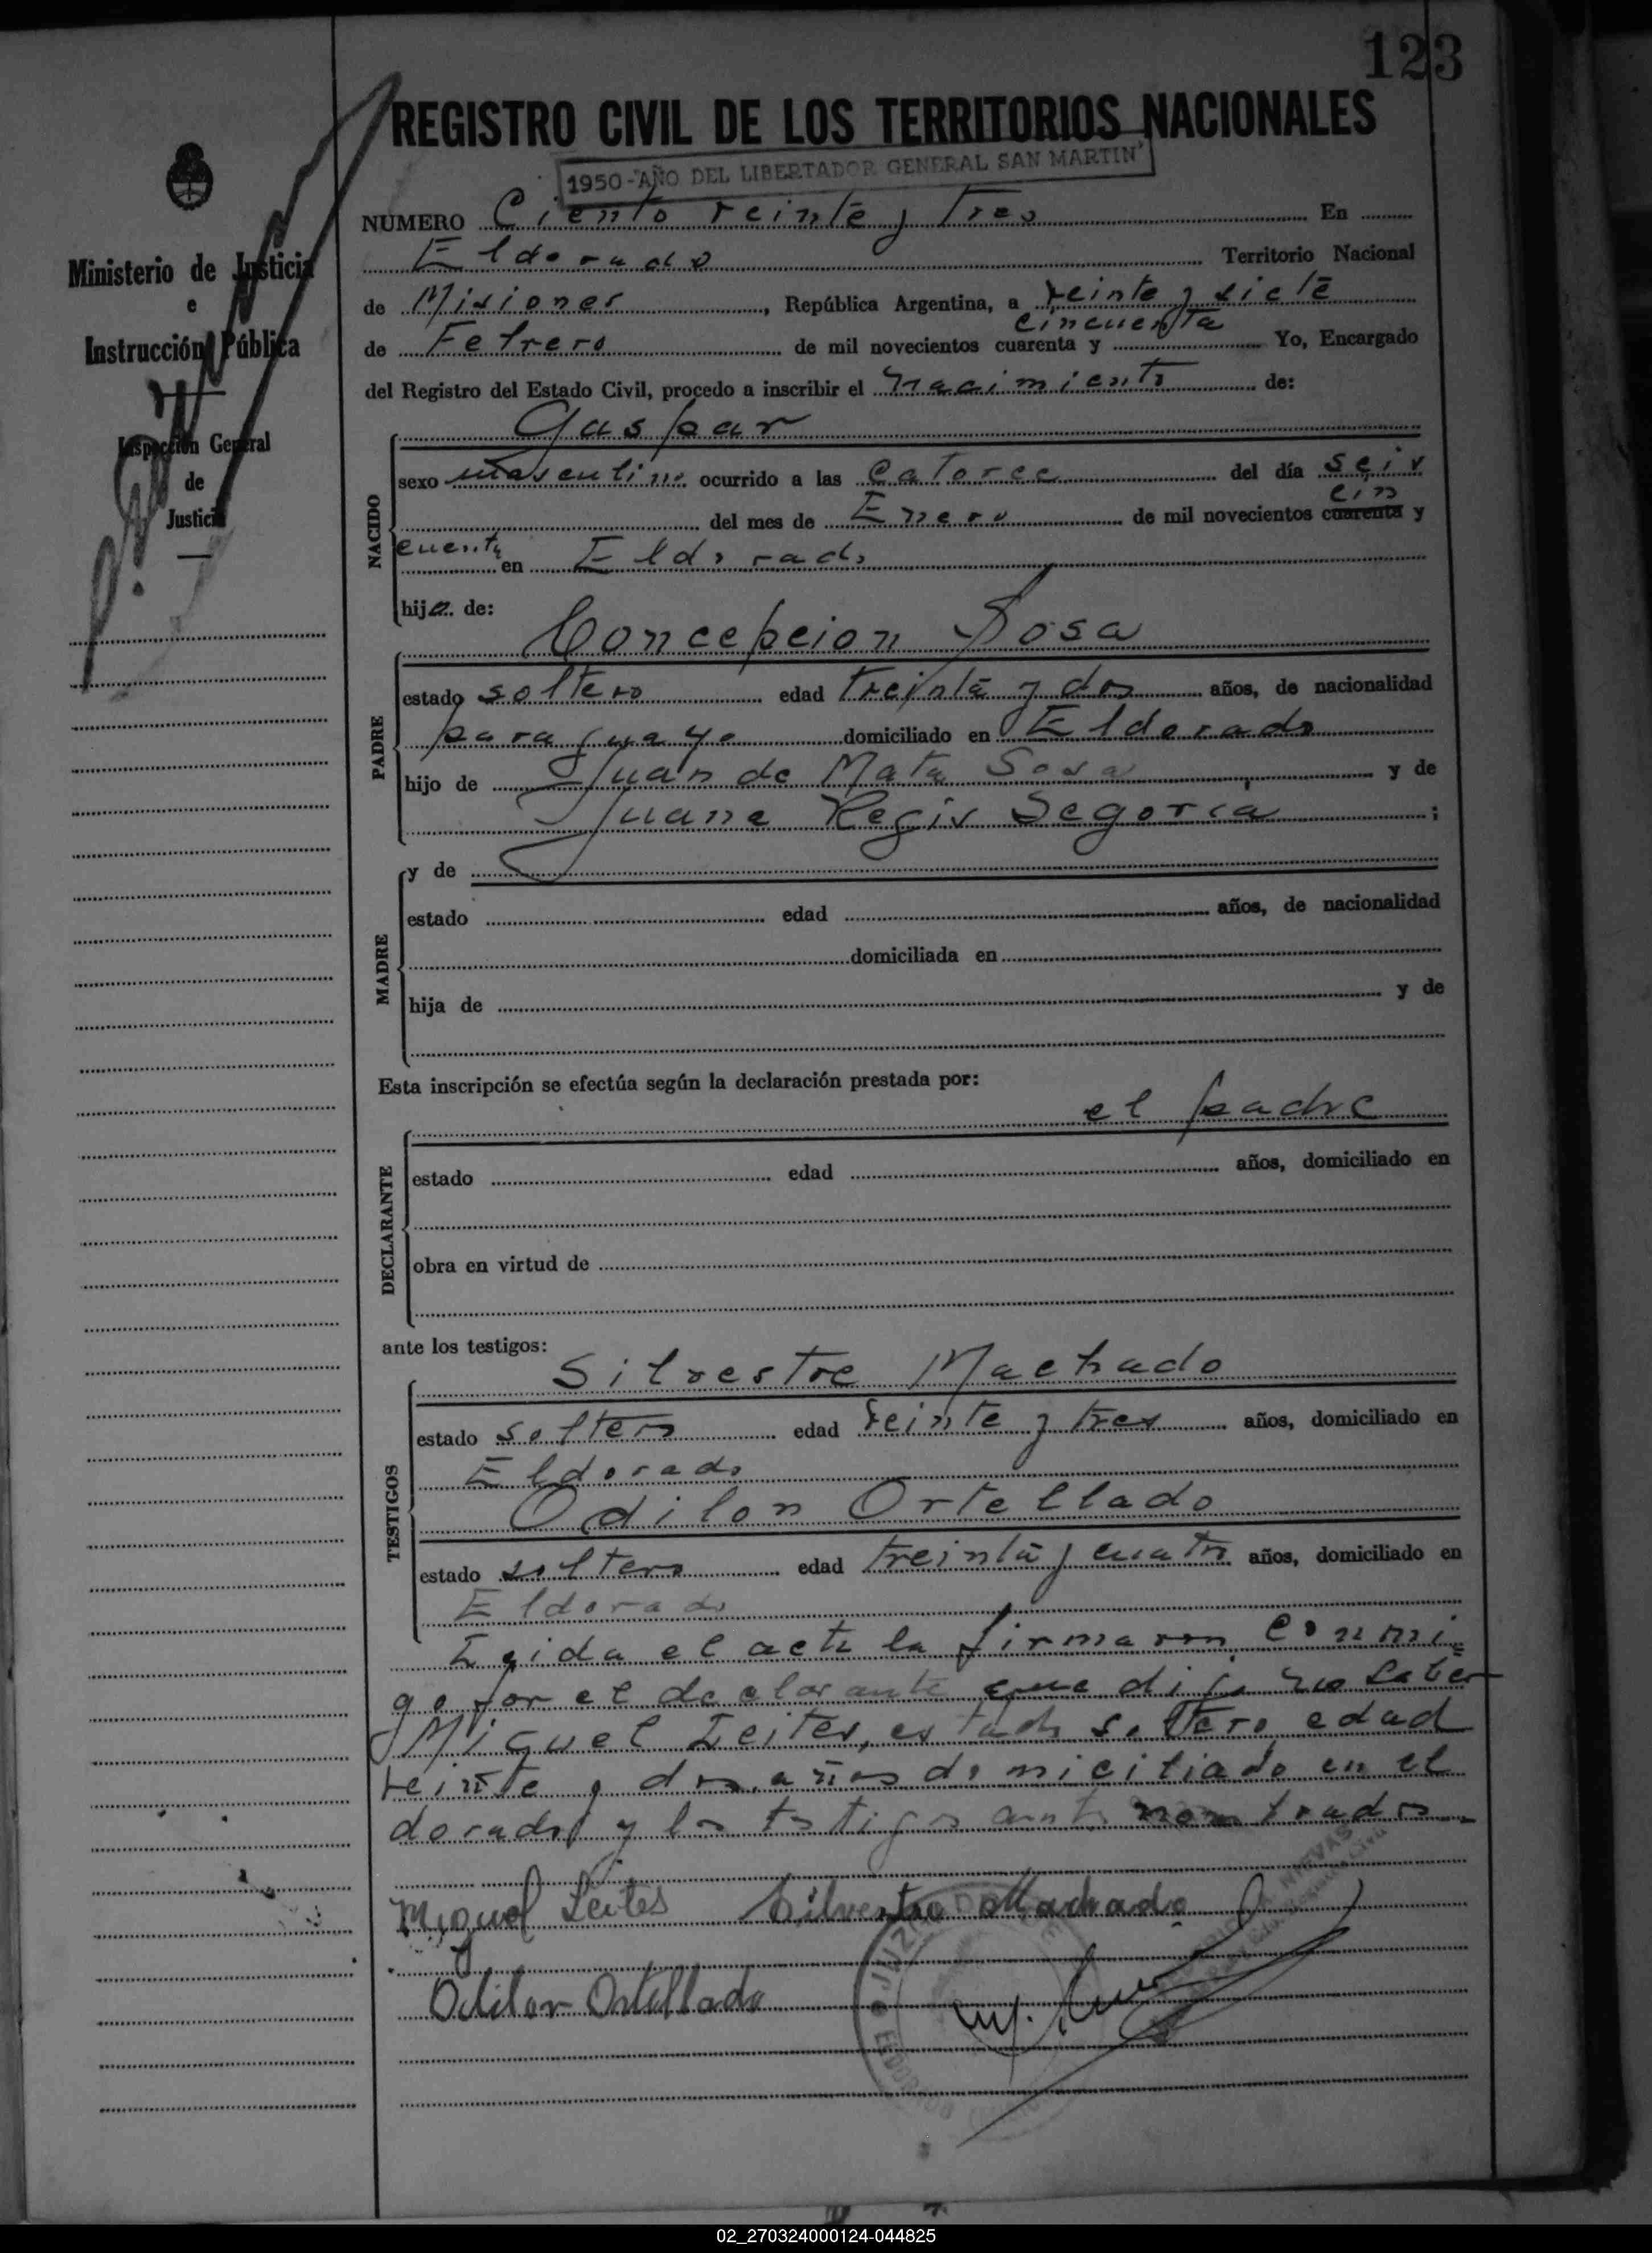 123
REGISTRO CIVIL DE LOS TERRITORIOS NACIONALES
1950-"AÑO DEL LIBERTADOR GENERAL SAN MARTIN"
Ministerio de Justicia
e
Instrucción Pública
Inspección General
de
Justicia
NUMERO Ciento veinte y Tres En
Eldorado Territorio Nacional
de Misiones, República Argentina, a veinte y siete
cincuenta
de Febrero de mil novecientos cuarenta y Yo, Encargado
del Registro del Estado Civil, procedo a inscribir el nacimiento de:
NACIDO
Gaspar
sexo masculino ocurrido a las catorce del día seis
cin
del mes de Enero de mil novecientos cuarenta y
cuenta en Eldorado
hijo de:
PADRE
Concepcion Sosa
estado soltero edad treinta y dos años, de nacionalidad
paraguayo domiciliado en Eldorado
hijo de Juan de Mata Sosa y de
Juana Regis Segovia;
MADRE
y de
estado edad años, de nacionalidad
domiciliada en
hija de y de
Esta inscripción se efectúa según la declaración prestada por:
DECLARANTE
el padre
estado edad años, domiciliado en
obra en virtud de
ante los testigos:
TESTIGOS
Silvestre Machado
estado soltero edad veinte y tres años, domiciliado en
Eldorado
Odilon Ortellado
estado soltero edad treinta y cuatro años, domiciliado en
Eldorado
Leida el acta la firmaron conmi=
go por el declarante que dijo no saber
Miguel Leites, estado soltero edad
veinte y dos años domiciliado en el
dorado y los testigos ante nombrados
Miguel Leites Silvestre Machado
Odilon Ortellado
ELDORADO
02_270324000124-044825